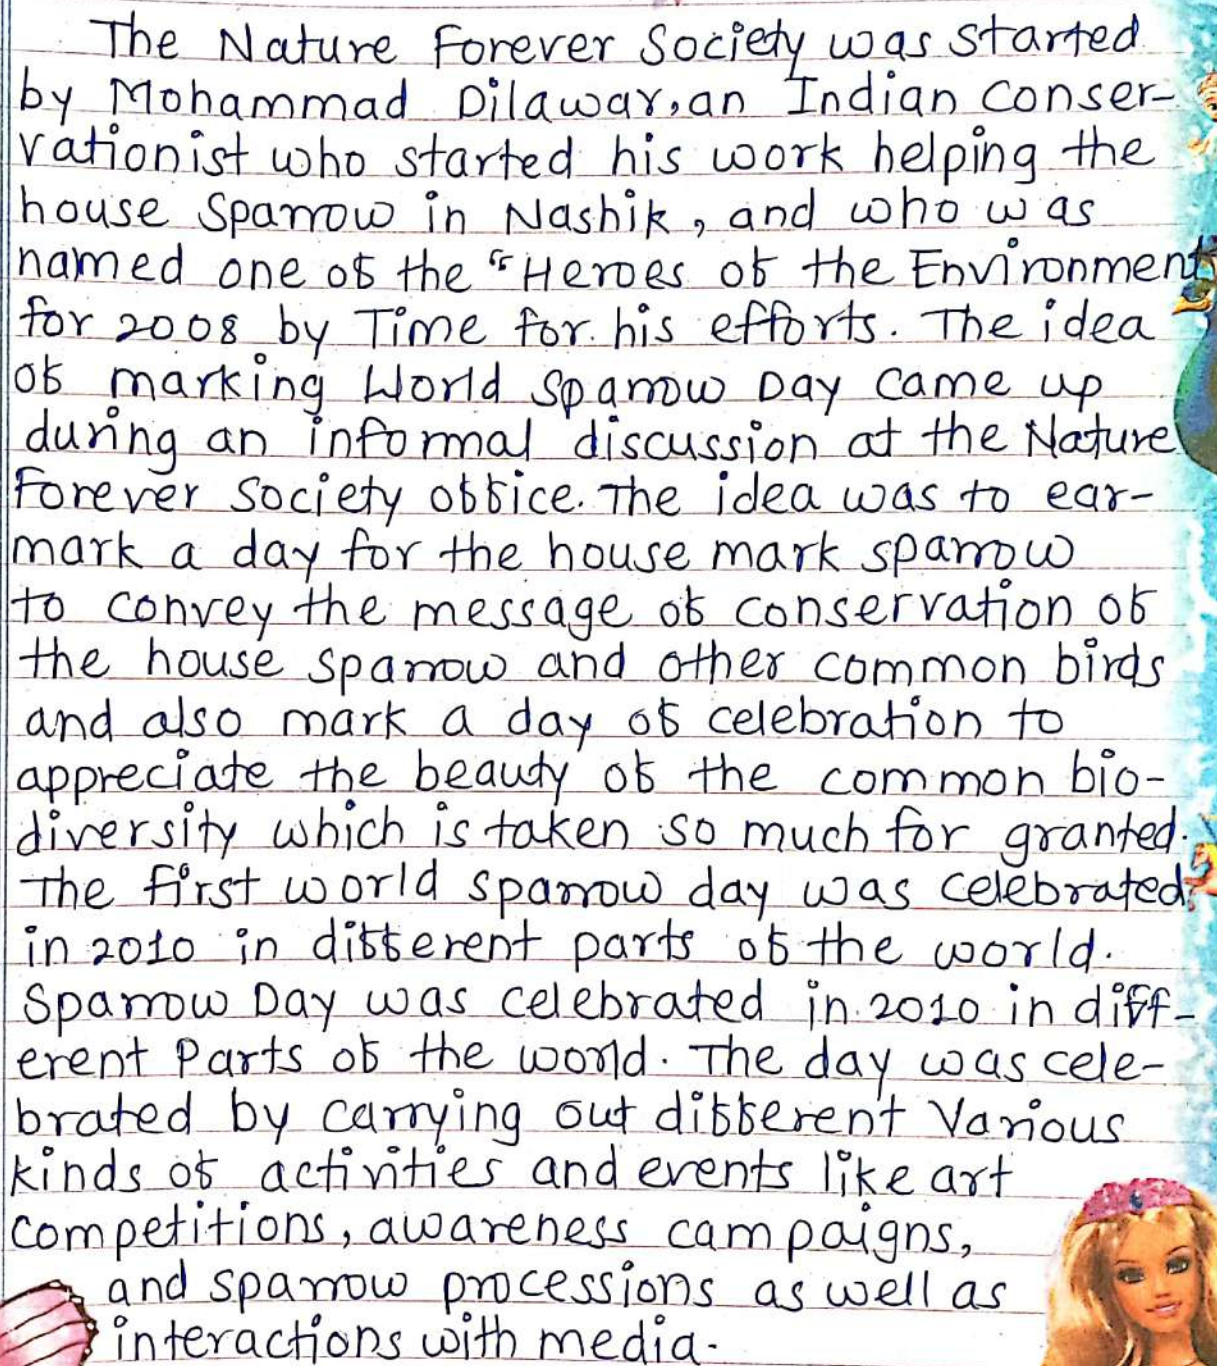 The Nature Forever Society was started
by Mohammad Dilawar, an Indian conser-
vationist who started his work helping the
house sparrow in Nashik, and who was
named one of the "Heroes of the Environment
for 2008 by Time for his efforts. The idea
of marking World Sparrow Day came up
during an informal discussion at the Nature
Forever Society office. The idea was to ear-
mark a day for the house mark sparrow
to convey the message of conservation of
the house sparrow and other common birds
and also mark a day of celebration to
appreciate the beauty of the common bio-
diversity which is taken so much for granted.
The first world sparrow day was celebrated
in 2010 in different parts of the world.
Sparrow Day was celebrated in 2010 in diff-
erent Parts of the world. The day was cele-
brated by carrying out different Various
kinds of activities and events like art
competitions, awareness campaigns,
and sparrow processions as well as
interactions with media.